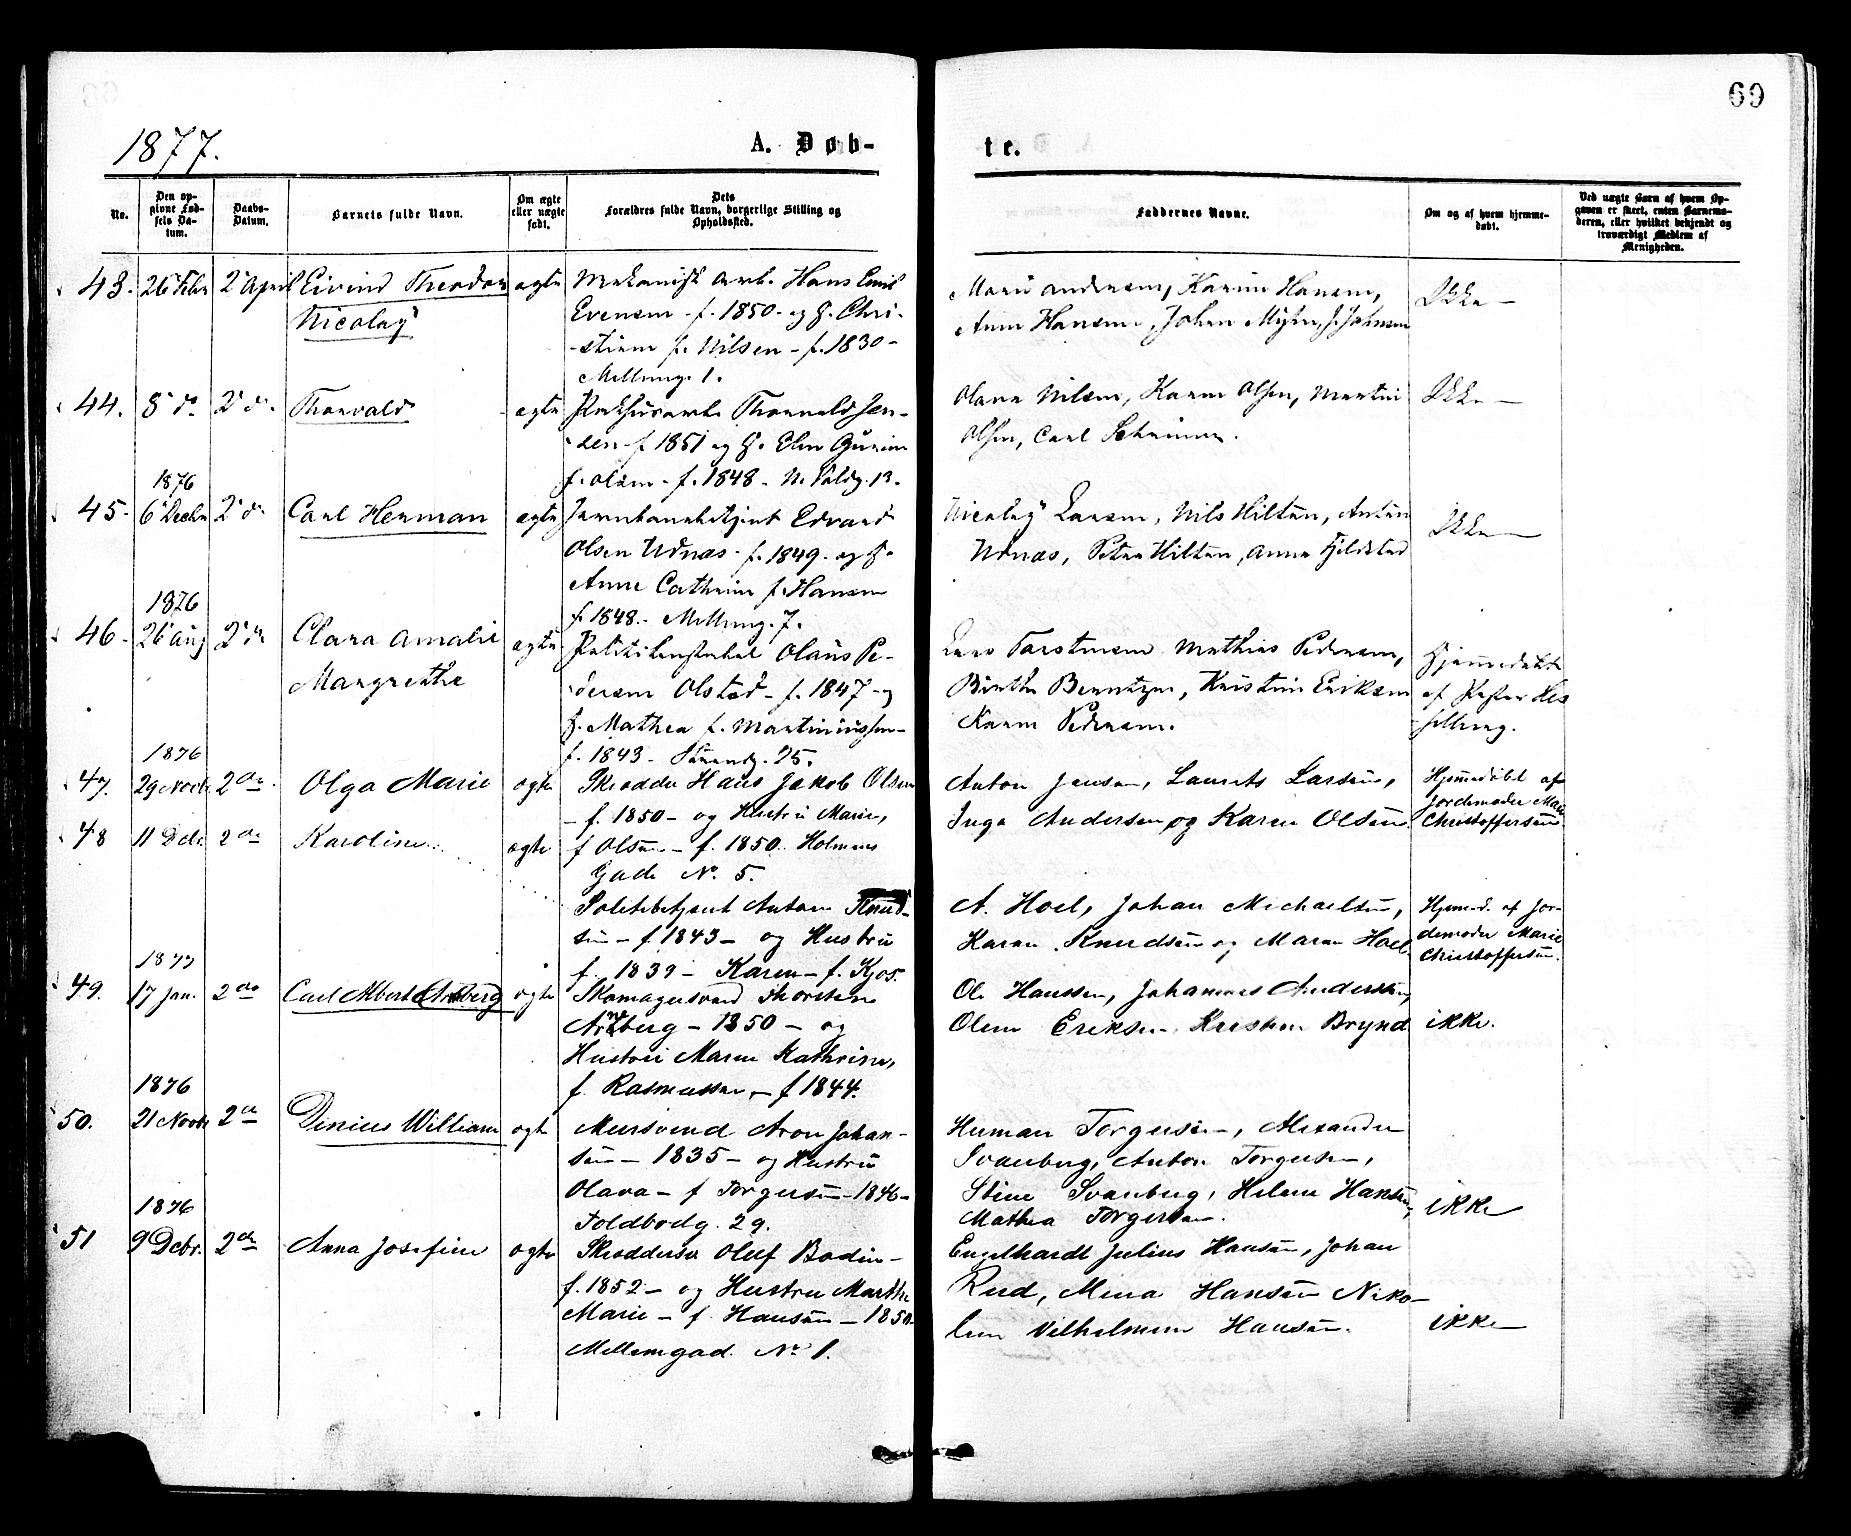 69
1877.
A. Døb-
te.
No.
Den op-
givne Fød-
sels Da-
tum.
Daabs-
Datum.
Barnets fulde Navn.
Om ægte
eller uægte
født.
Dets
Forældres fulde Navn, borgerlige Stilling og
Opholdssted.
Faddernes Navne.
Om og af hvem hjemme-
døbt.
Ved uægte Børn af hvem Op-
gaven er skeet, enten Barnemo-
deren, eller hvilket bekjendt og
troværdigt Medlem af
Menigheden.
43. 26 Febr 2 April Eivind Theodor ægte Mekanisk arb. Hans Emil
Nicolay
Evensen - f. 1850 - og H. Chri-
stiane f. Nilsen - f. 1830 -
Mellomg. 1.
Marie Andersen, Karine Hansen,
Anne Hansen, Johan J. Johnsen
Ikke
44. 8 do 2 do Thorvald ægte Pakhusarb. Thorvald Jen-
sen f 1851 og H. Elen
f. Olsen - f. 1848 -
Olava Nilsen, Karen Olsen, Martin
Olsen, Carl
Ikke
1876
45. 6 Decbr 2 do Carl Herman ægte Jernbanebetjent Edvard
Olsen Udnæs - f. 1849 - og H.
Anne Cathrine f. Hansen
f. 1848 - Mellomg. 7.
Nicolay Larsen, Nils Hilton, Anton
Udnæs, Peter Hilton, Anna Fjeldstad
Ikke
1876
46 - 26 Aug 2 do Clara Amalie ægte Politikonstabel Olaus Pe-
Margrethe
dersen Olstad - f. 1847 - og
H. Mathea f. Martiniussen -
f. 1843 - Strandg. 25.
Lars Torstensen Mathias Pedersen,
Berntzen, Kristine Eriksen
Karen Pedersen.
Hjemmedøbt
af Pastor Hes
selberg.
1876
47. 29 Novbr 2 do Olga Marie ægte Skrædder Hans Jakob Olsen
- f. 1850 - og Hustru Marie,
f Olsen - f. 1850. Holmens
Gade No 5.
Anton Jensen, Laurits Larsen,
Inga Andersen og Karen Olsen
Hjemmedøbt af
Jordemoder Marie
Christoffersen
48 11 Dcbr. 2 do Karoline ægte
Politibetjent Anton Knud-
sen - f 1843 - og Hustru
f. 1839 - Karen - f. Kjos.
A. Hoel, Johan Michaelsen,
Karen Knudsen og Maren Hoel
Hjemmed. af Jor-
demoder Marie
Christoffersen.
1877
49. 17 Jan. 2 do Carl Albert Arnberg ægte Skomagersvend Thorsten
Arnberg - 1850 - og
Hustru Maren Kathrine,
f. Rasmussen - f 1844.
Ole Hanssen, Johannes Anderssen,
Olene Eriksen, Kristine Brynd
ikke.
1876
50. 21 Novbr 2 do Dinius William ægte Mursvend Aron Johan-
sen - 1835 - og Hustru
Olava - f Torgersen - 1846 -
Toldbodg. 29.
Herman Torgersen, Alexander
Svanberg, Anton Torgersen,
Stine Svanberg, Helene Hansen,
Mathea Torgersen.
ikke
1876
51 9 Dcbr. 2 do Anna Josefine ægte Skræddersv Oluf Bodin -
f. 1852 - og Hustru Marthe
Marie - f. Hansen - 1850
Mellemgad. No 1.
Engelhardt Julius Hansen, Johan
Rud, Mina Hansen Niko-
line Vilhelmine Hansen.
ikke